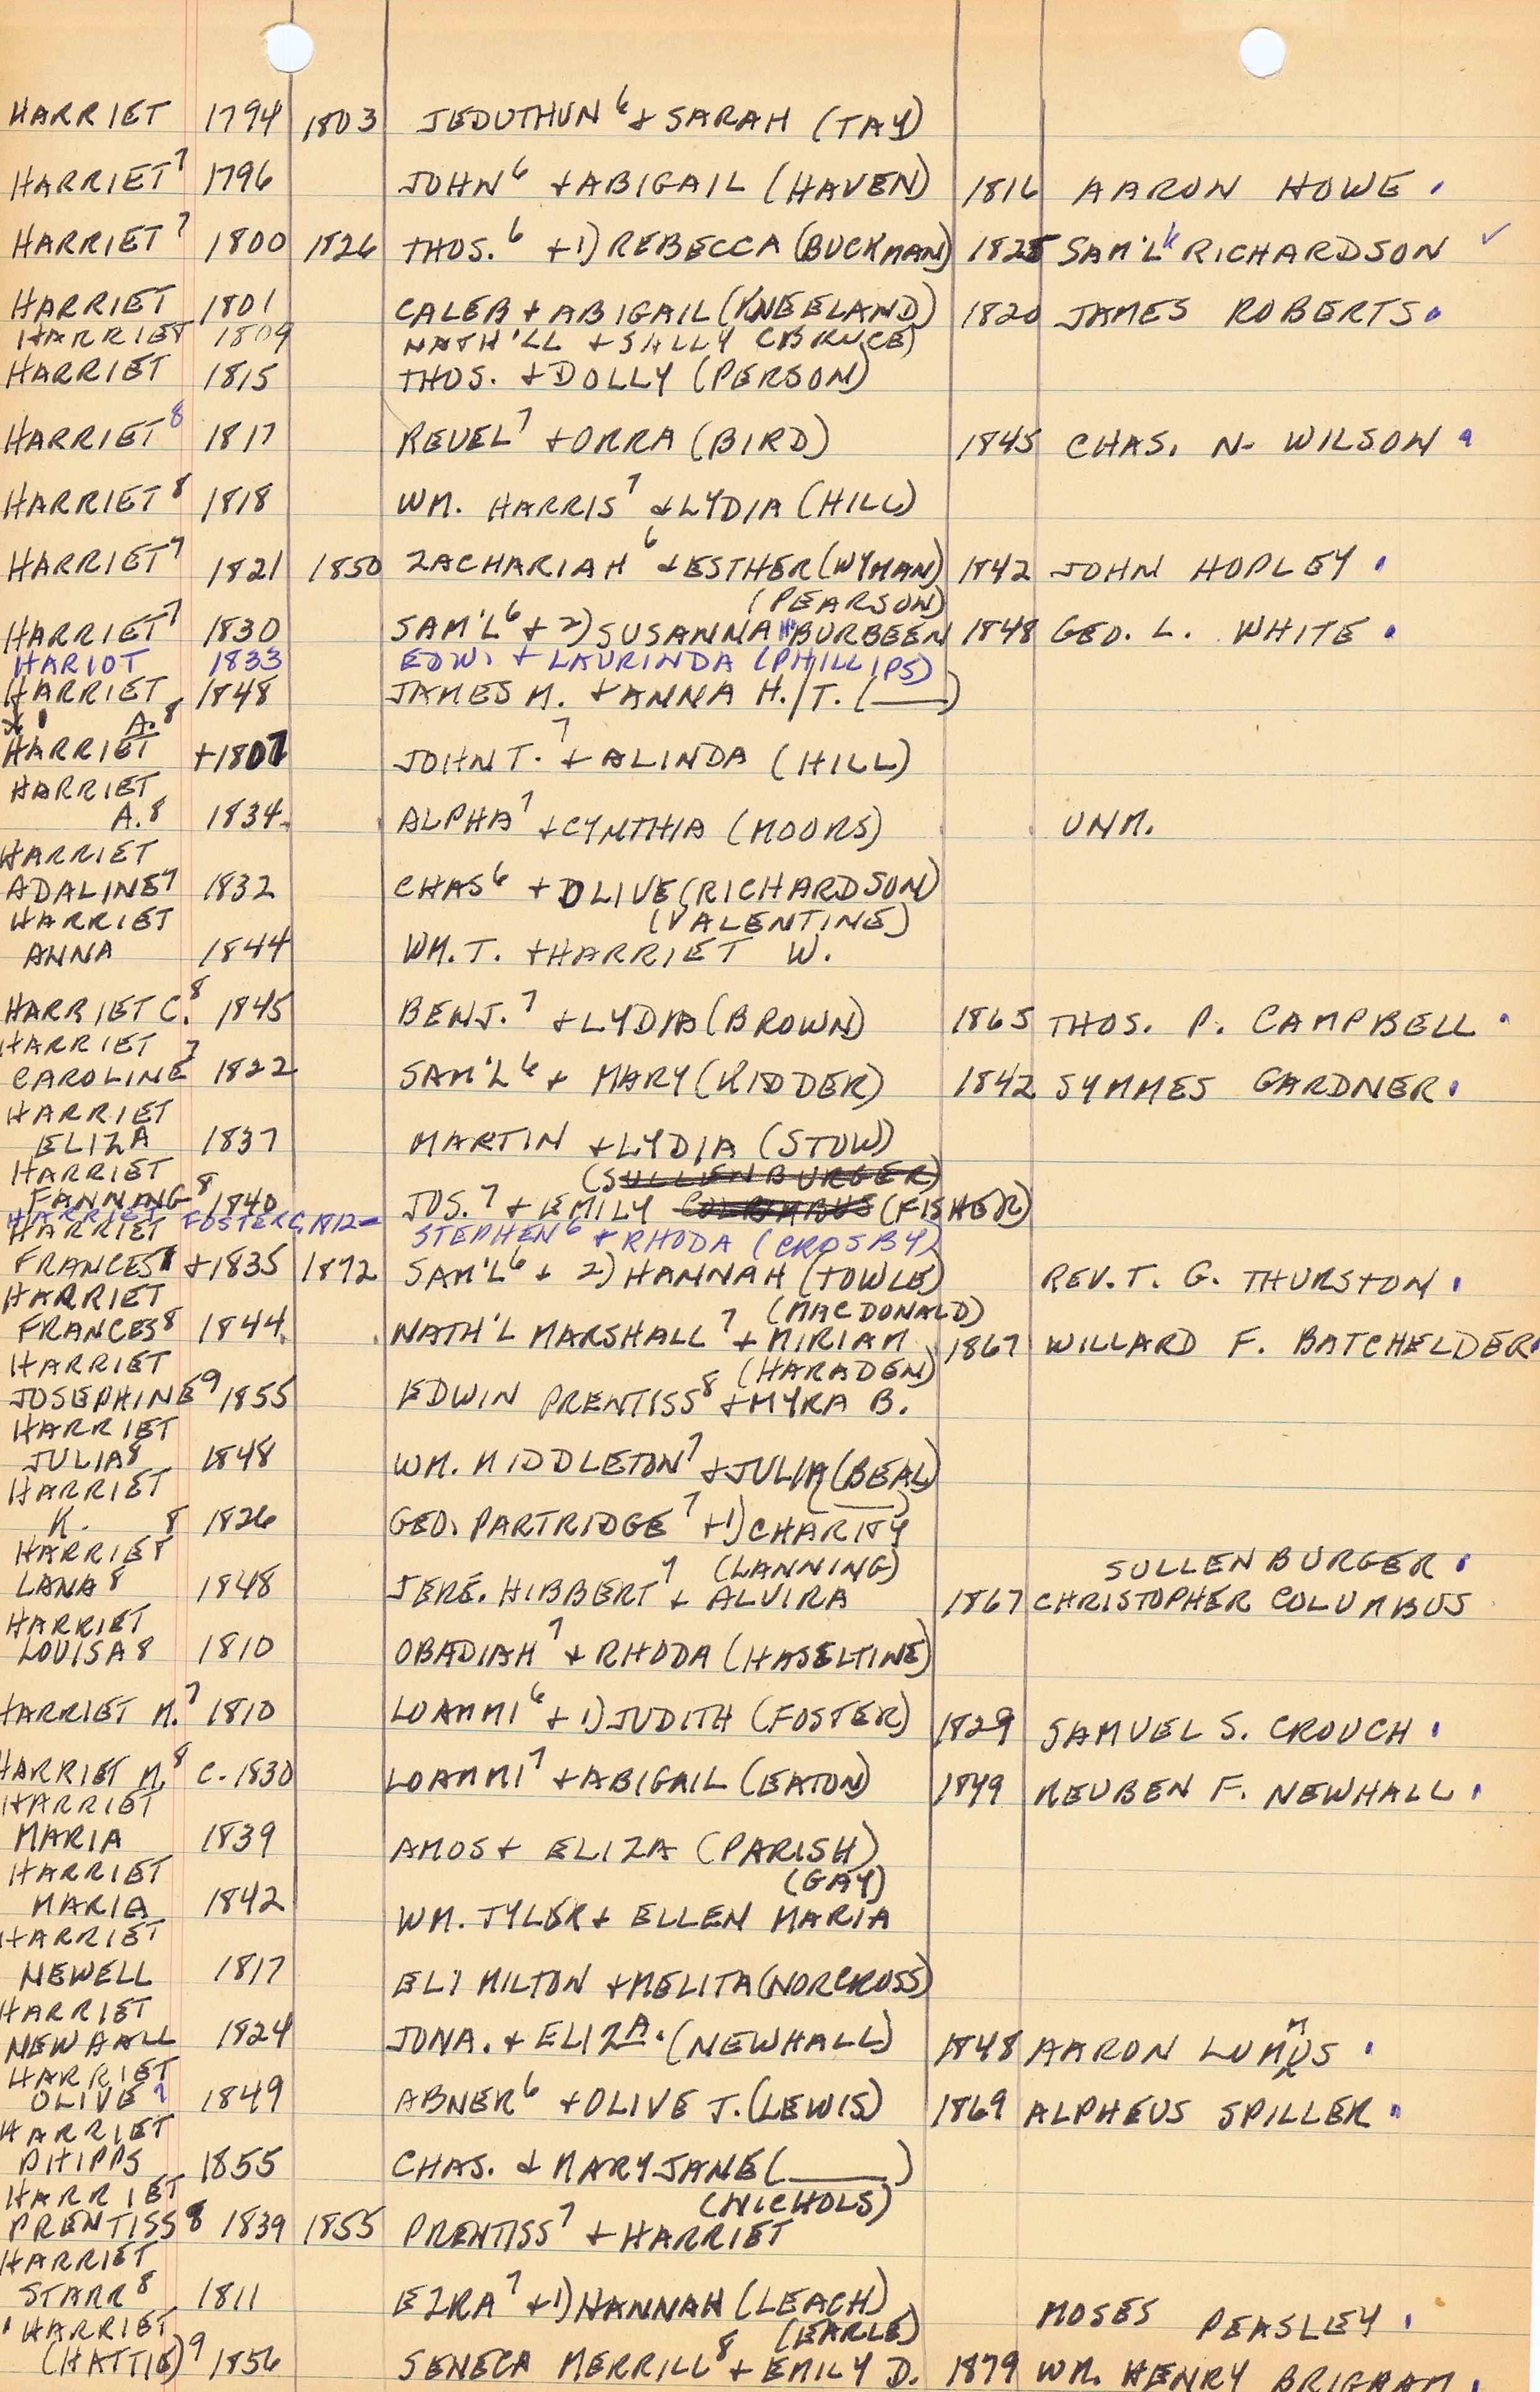 HARRIET 1794 1803 JEDUTHUN⁶ + SARAH (TAY)
HARRIET⁷ 1796 JOHN⁶ + ABIGAIL (HAVEN) 1816 AARON HOWE .
HARRIET⁷ 1800 1826 THOS.⁶ +1) REBECCA (BUCKMAN) 1825 SAM'L K RICHARDSON ✓
HARRIET 1801 CALEB + ABIGAIL (KNEELAND) 1820 JAMES ROBERTS.
HARRIET 1809 NATH'LL + SALLY (BRUCE)
HARRIET 1815 THOS. + DOLLY (PERSON)
HARRIET⁸ 1817 REUEL⁷ + ORRA (BIRD) 1845 CHAS. N. WILSON .
HARRIET⁸ 1818 WM. HARRIS⁷ + LYDIA (HILL)
HARRIET⁷ 1821 1850 ZACHARIAH⁶ + ESTHER (WYMAN) 1842 JOHN HOPLEY .
(PEARSON)
HARRIET⁷ 1830 SAM'L⁶ + 2) SUSANNA BURBEEN 1848 GEO. L. WHITE .
HARIOT 1833 EDW. + LAURINDA (PHILLIPS)
HARRIET 1848 JAMES M. + ANNA H./T. (____)
A.⁸
HARRIET +1807 JOHN T.⁷ + ALINDA (HILL)
HARRIET
A.⁸ 1834. ALPHA⁷ + CYNTHIA (MOORS) UNM.
HARRIET
ADALINE⁷ 1832 CHAS⁶ + OLIVE (RICHARDSON)
HARRIET (VALENTINE)
ANNA 1844 WM. T. + HARRIET W.
HARRIET C.⁸ 1845 BENJ.⁷ + LYDIA (BROWN) 1865 THOS. P. CAMPBELL .
HARRIET
CAROLINE⁷ 1822 SAM'L⁶ + MARY (KIDDER) 1842 SYMMES GARDNER .
HARRIET
ELIZA 1837 MARTIN + LYDIA (STOW)
HARRIET (SULLENBURGER)
FANNING⁸ 1840 JOS.⁷ + EMILY COLUMBUS (FISHER)
HARRIET FOSTER C. 1812- STEPHEN⁶ + RHODA (CROSBY)
HARRIET
FRANCES +1835 1872 SAM'L⁶ + 2) HANNAH (TOWLE) REV. T. G. THURSTON .
HARRIET (MACDONALD)
FRANCES⁸ 1844. NATH'L MARSHALL⁷ + MIRIAM 1867 WILLARD F. BATCHELDER.
HARRIET (HARADEN)
JOSEPHINE⁹ 1855 EDWIN PRENTISS⁸ + MYRA B.
HARRIET
JULIA⁸ 1848 WM. MIDDLETON⁷ + JULIA (BEAL)
HARRIET (____)
K. ⁸ 1826 GEO. PARTRIDGE⁷ +1) CHARITY
HARRIET (LANNING) SULLENBURGER .
LANA⁸ 1848 JERE. HIBBERT⁷ + ALVIRA 1867 CHRISTOPHER COLUMBUS
HARRIET
LOUISA⁸ 1810 OBADIAH⁷ + RHODA (HASELTINE)
HARRIET M.⁷ 1810 LOAMMI⁶ + 1) JUDITH (FOSTER) 1829 SAMUEL S. CROUCH .
HARRIET M.⁸ C. 1830 LOAMMI⁷ + ABIGAIL (EATON) 1849 REUBEN F. NEWHALL .
HARRIET
MARIA 1839 AMOS + ELIZA (PARISH)
HARRIET (GAY)
MARIA 1842 WM. TYLER + ELLEN MARIA
HARRIET
NEWELL 1817 ELI MILTON + MELITA (NORCROSS)
HARRIET
NEWHALL 1824 JONA. + ELIZA. (NEWHALL) 1848 AARON LUMMUS .
HARRIET
OLIVE⁷ 1849 ABNER⁶ + OLIVE J. (LEWIS) 1869 ALPHEUS SPILLER .
HARRIET
PHIPPS 1855 CHAS. + MARY JANE (____)
HARRIET (NICHOLS)
PRENTISS⁸ 1839 1855 PRENTISS⁷ + HARRIET
HARRIET
STARR⁸ 1811 EZRA⁷ +1) HANNAH (LEACH) MOSES PEASLEY .
HARRIET (EARLE)
(HATTIE)⁹ 1856 SENECA MERRILL⁸ + EMILY D. 1879 WM. HENRY BRIGHAM .